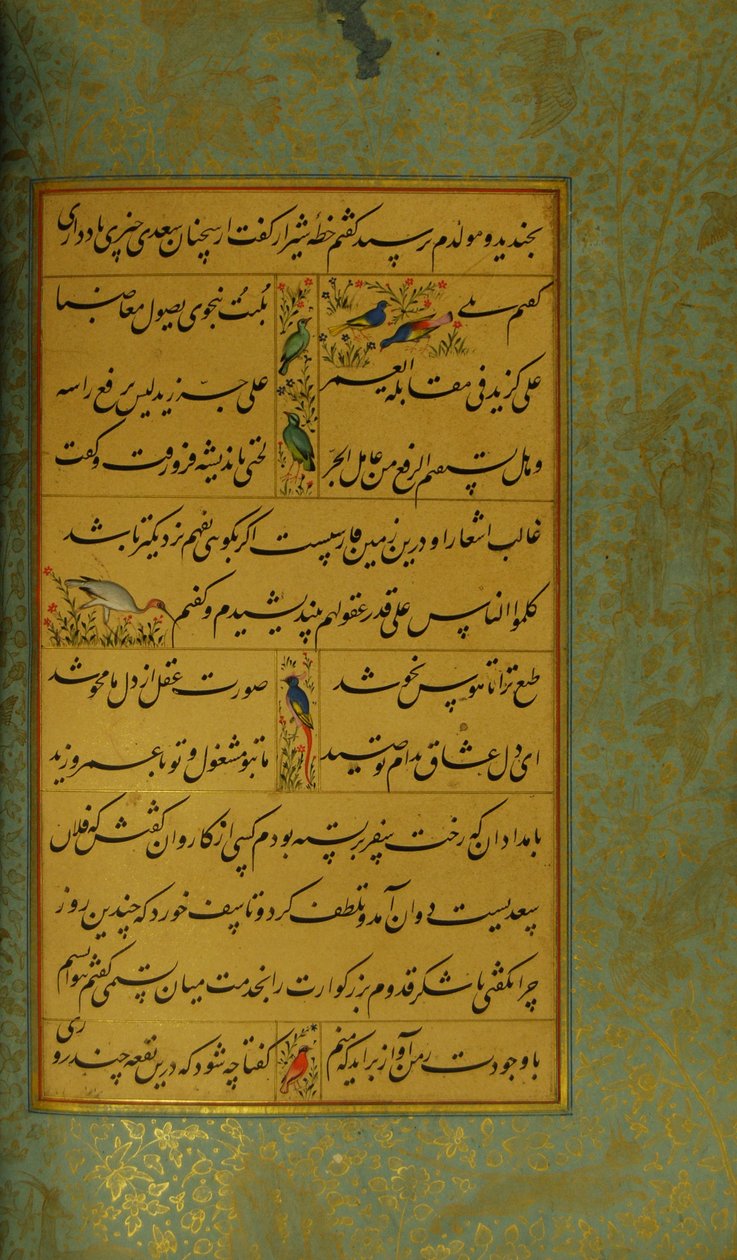 بخندید و مولدم پرسید گفتم خطهٔ شیراز گفت از سخنان سعدی چیزی یاد داری
گفتم بلے بُلیتُ بنحوی یصول مغاضبا
علی کزید فی مقابله العمر علی جر زید لیس یرفع راسه
و هل یستقیم الرفع من عامل الجرّ لختی باندیشه فرو رفت و گفت
غالب اشعار او درین زمین فارسیست اگر بگویی بفهم نزدیکتر باشد
کلموا الناس علی قدر عقولهم بیندیشیدم و گفتم
طبع ترا تا هوس نحو شد صورت عقل از دل ما محو شد
ای دل عشاق بدام تو صید ما بتو مشغول و تو با عمرو زید
بامدادان که رخت سفر بر بسته بودم کسی از کاروان گفتش که فلان
سعدیست دوان آمد و تلطف کرد و تاسف خورد که چندین روز
چرا نگفتی تا شکر قدوم بزرگوارت را بخدمت میان بستمی گفتم
با وجودت ز من آواز برآید که منم گفتا چه شود که درین بقعه چند روزی